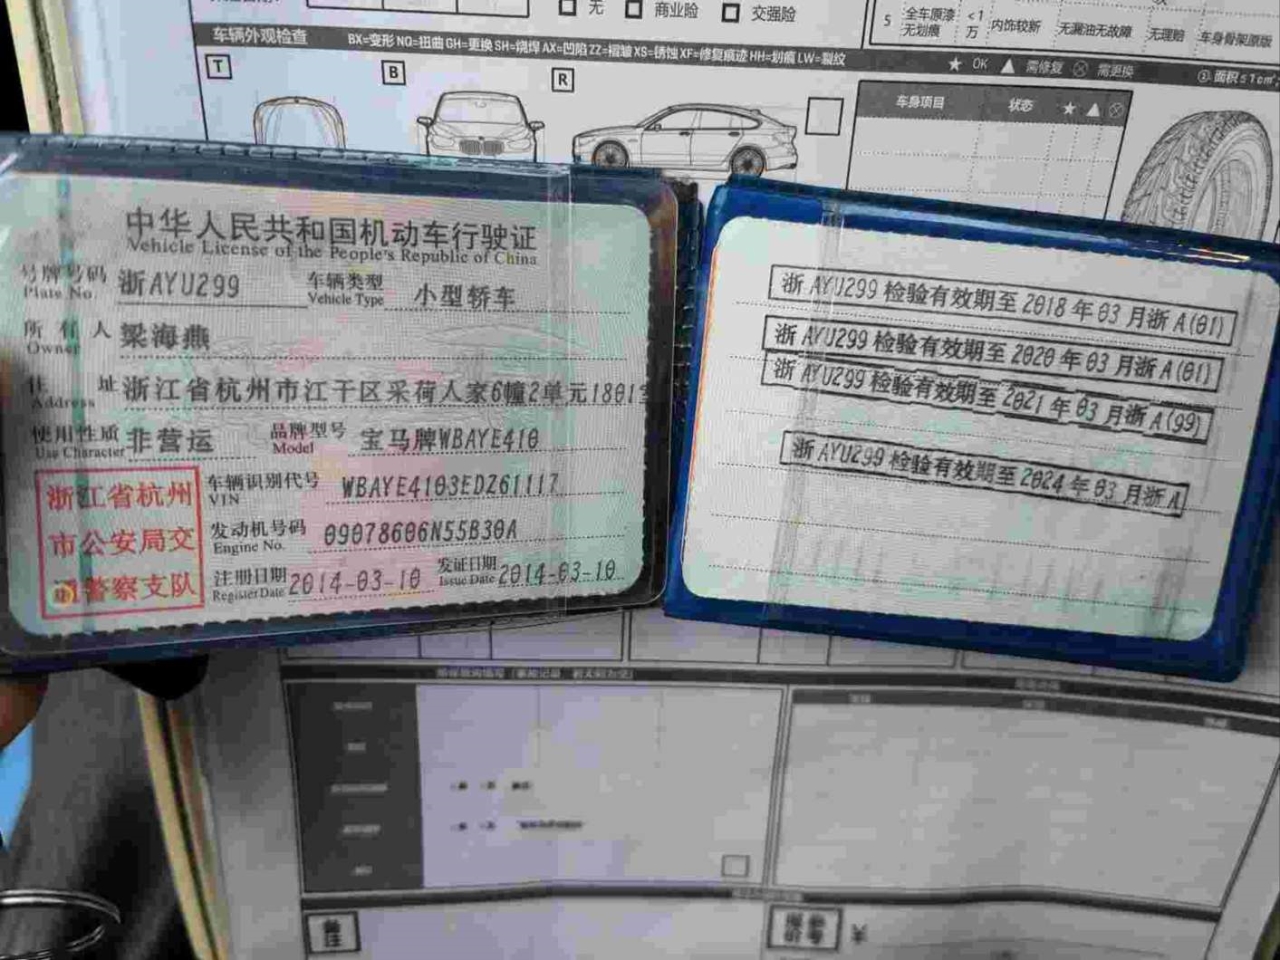 无 商业险 交强险
5 全车原漆无划痕 <1万 内饰较新 无漏油无故障 无理赔 车身骨架原版
车辆外观检查 BX=变形 NQ=扭曲 GH=更换 SH=烧焊 AX=凹陷 ZZ=褶皱 XS=锈蚀 XF=修复痕迹 HH=划痕 LW=裂纹
★ OK ▲ 需修复 ⊗ 需更换
T B R
车身项目 状态 ★ ▲ ⊗
中华人民共和国机动车行驶证
Vehicle License of the People's Republic of China
号牌号码 浙AYU299 车辆类型 小型轿车
Plate No. Vehicle Type
所有人 梁海燕
Owner
住址 浙江省杭州市江干区采荷人家6幢2单元1801
Address
使用性质 非营运 品牌型号 宝马牌WBAYE410
Use Character Model
浙江省杭州市公安局交通警察支队
车辆识别代号 WBAYE4103EDZ61117
VIN
发动机号码 09078606N55B30A
Engine No.
注册日期 2014-03-10 发证日期 2014-03-10
Register Date Issue Date
浙AYU299 检验有效期至 2018 年 03 月浙 A(01)
浙AYU299 检验有效期至 2020 年 03 月浙 A(01)
浙AYU299 检验有效期至 2021 年 03 月浙 A(99)
浙AYU299 检验有效期至 2024 年 03 月浙 A